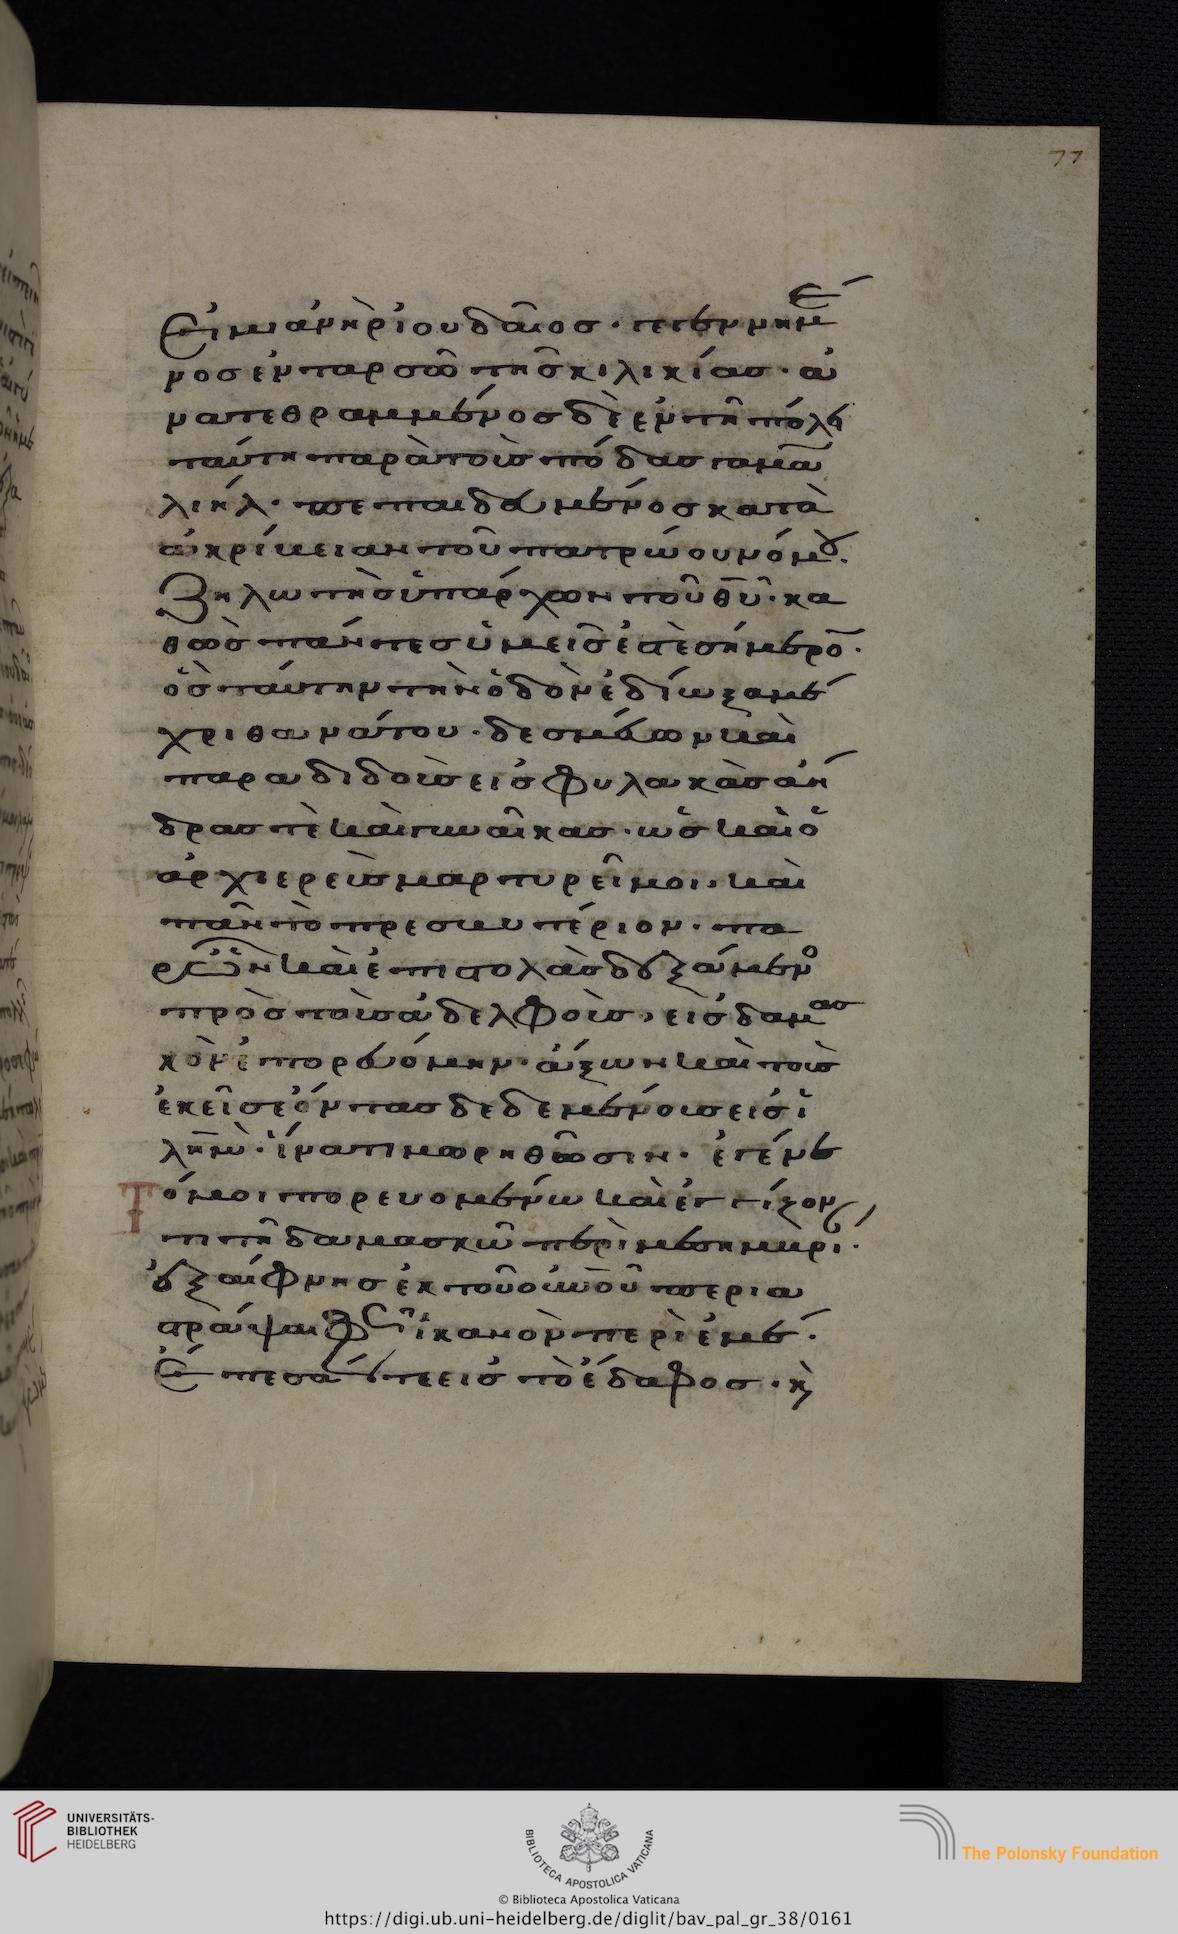 77
εἰμι ἀνὴρ ἰουδαῖος· γεγεννημέ
νος ἐν ταρσῶ τῆς κιλικίας· ἀ
νατεθραμμένος δὲ ἐν τῆ πόλει
ταύτη παρὰ τοὺς πόδας γαμα
λιήλ· πεπαιδευμένος κατὰ
ἀκρίβειαν τοῦ πατρώου νόμου·
ζηλωτὴς ὑπάρχων τοῦ θ̅υ̅· κα
θὼς πάντες ὑμεῖς ἐστὲ σήμερο̅·
ὃς ταύτην τὴν ὁδὸν ἐδίωξα μέ
χρι θανάτου· δεσμεύων καὶ
παραδιδοὺς εἰς φυλακὰς ἄν
δρας τὲ καὶ γυναῖκας· ὡς καὶ ὁ
ἀρχιερεὺς μαρτυρεῖ μοι, καὶ
πᾶν τὸ πρεσβυτέριον· πα
ρ' ὧν καὶ ἐπιστολὰς δεξάμενο
πρὸς τοὺς ἀδελφοὺς, εἰς δαμασ
κὸν ἐπορευόμην· ἄξων καὶ τοὺς
ἐκεῖσε ὄντας δεδεμένους εἰς ἱ
λῆ̅μ̅· ἵνα τιμωρηθῶσιν· ἐγένε
Τό μοι πορευομένω καὶ ἐγγίζον
τι τῆ δαμασκῶ περὶ μεσημβρί·
ἐξαίφνης ἐκ τοῦ οὐ̅νοῦ̅ περια
στράψαι φῶς ἱκανὸν περὶ ἐμέ·
ἔπεσά τε εἰς τὸ ἔδαφος· κ̀
UNIVERSITÄTS-
BIBLIOTHEK
HEIDELBERG
BIBLIOTECA APOSTOLICA VATICANA
The Polonsky Foundation
© Biblioteca Apostolica Vaticana
https://digi.ub.uni-heidelberg.de/diglit/bav_pal_gr_38/0161